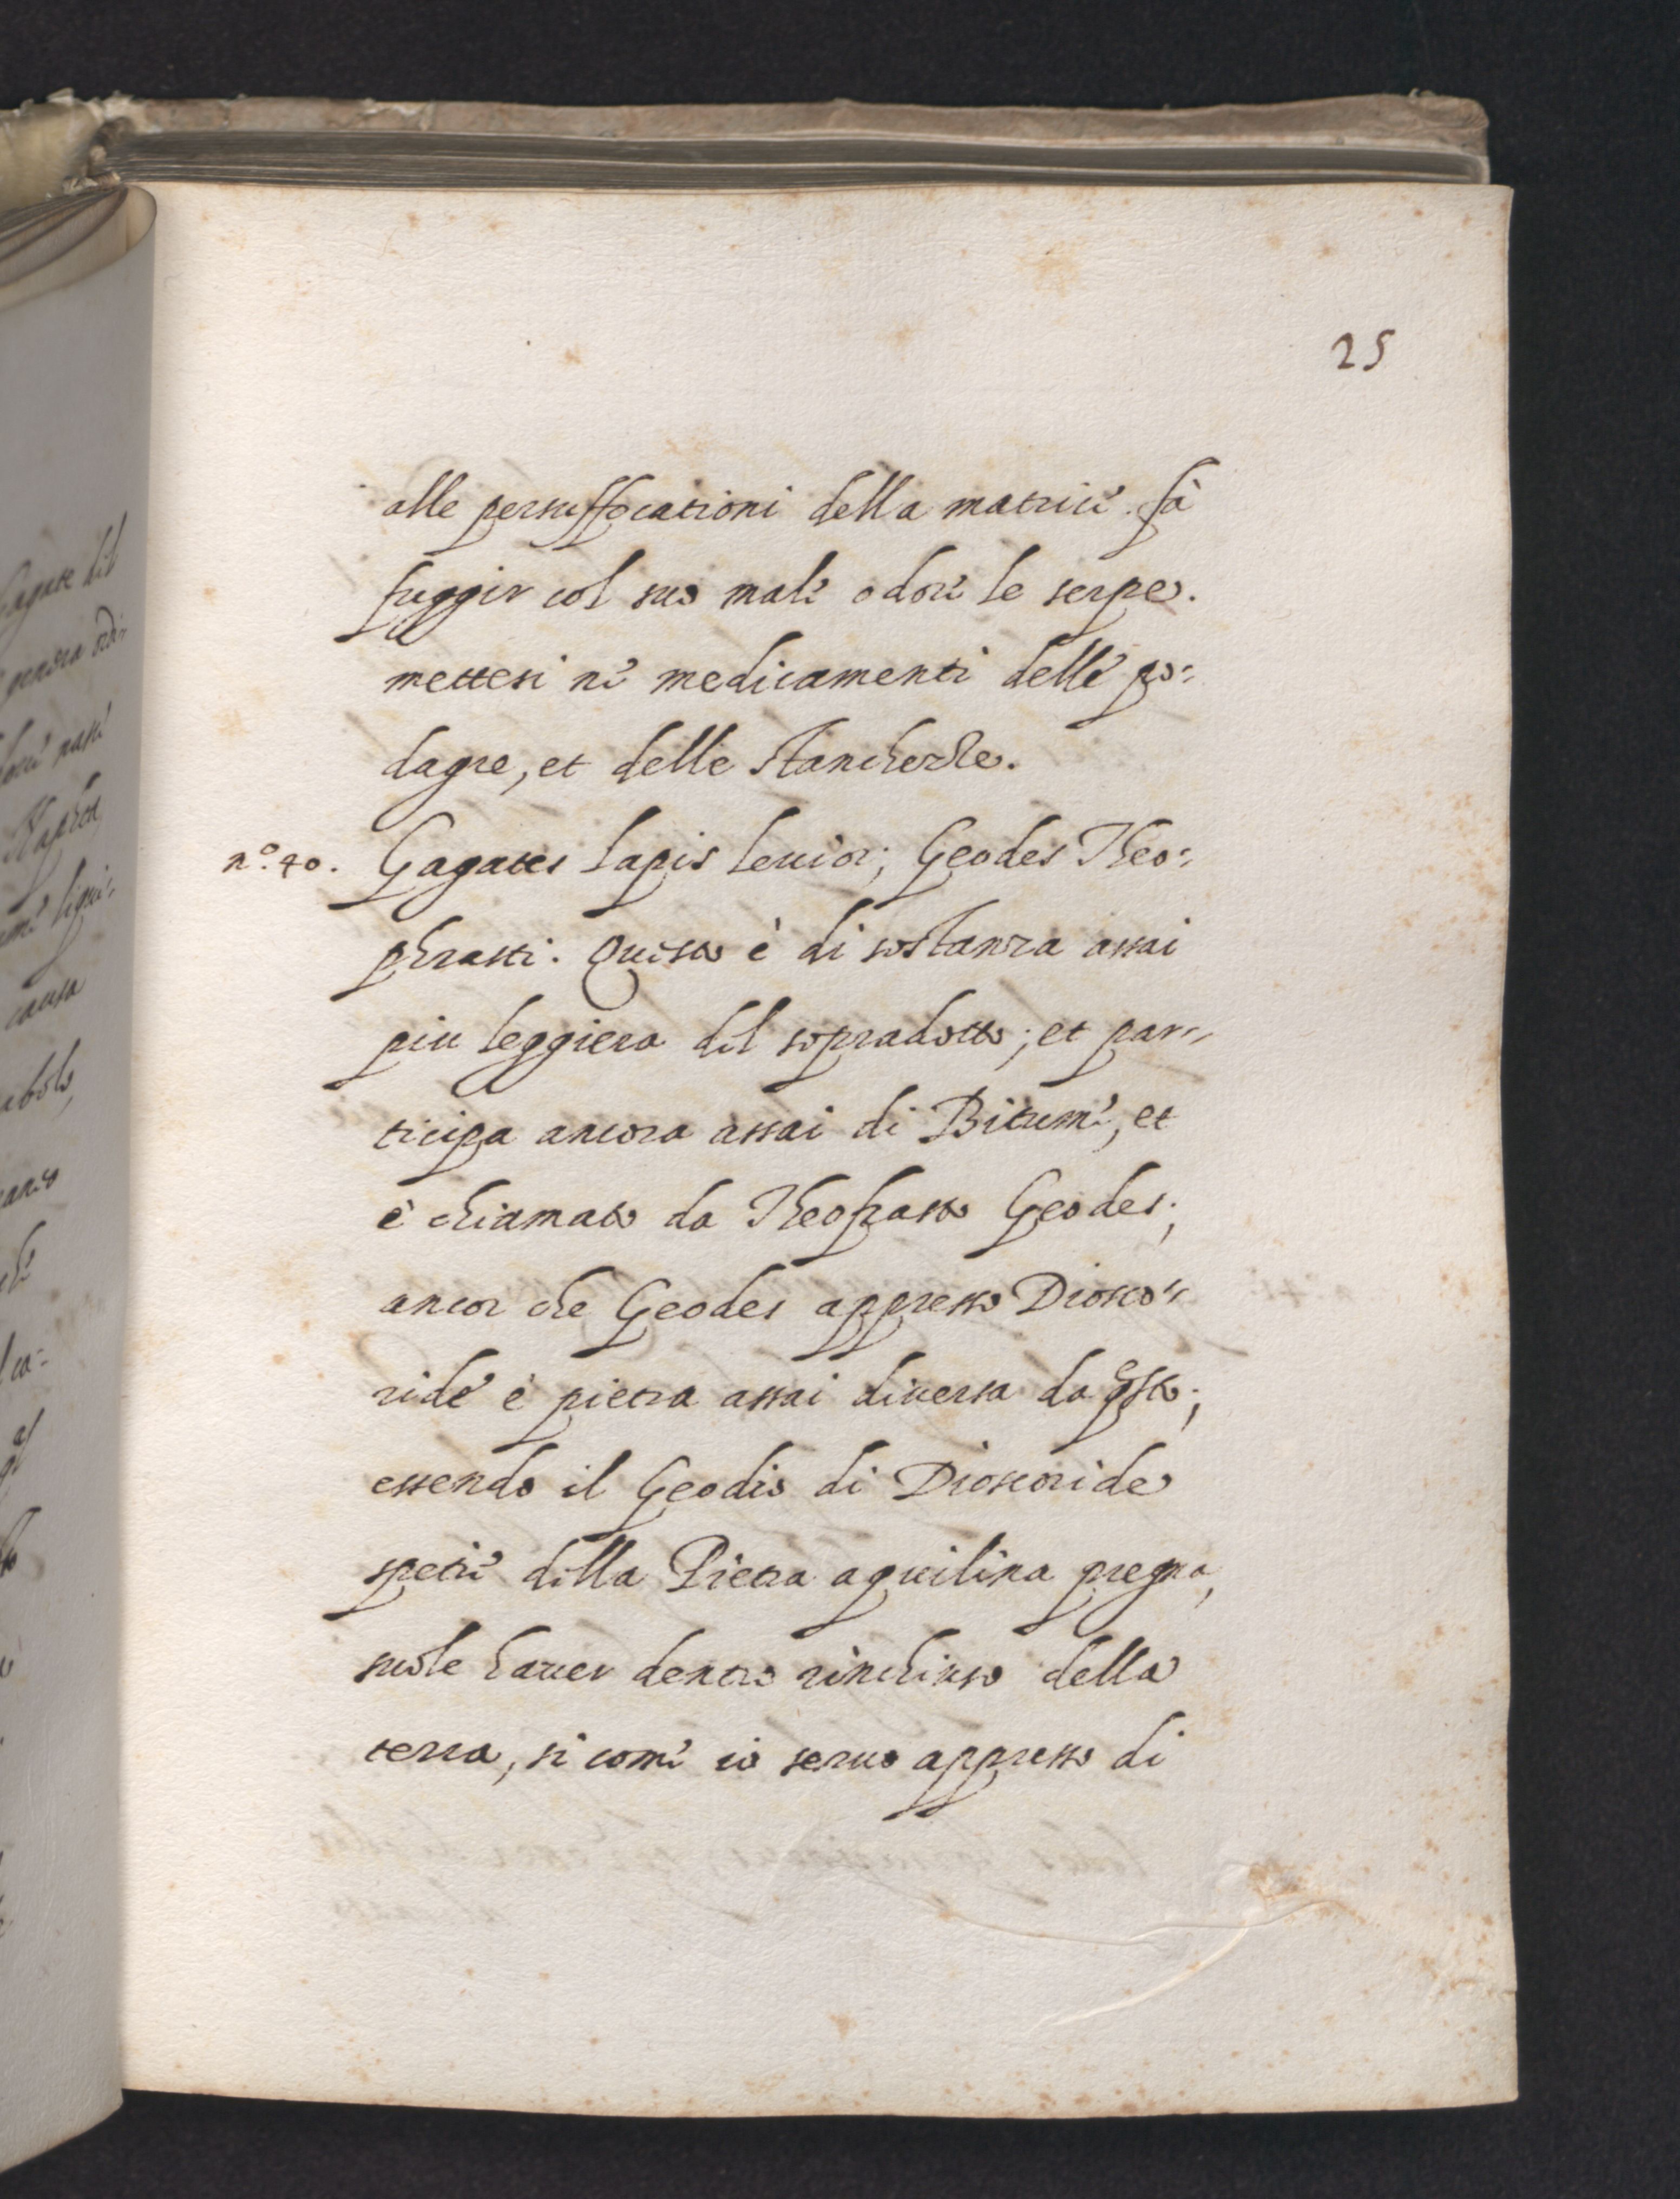 25
alle persuffocationi della matrice. fà
fuggir col suo male odore le serpe.
mettesi ne medicamenti delle po=
dagre, et delle stancherze.
n.º 40. Gagates lapis leuior; Geodes Theo=
phrasti. Questo è di sostanza assai
piu leggiera del sopradetto; et par=
ticipa ancora assai di Bitume, et
è chiamato da Theofrasto Geodes;
ancor che Geodes appresso Diosco=
ride è pietra assai diuersa da qsto;
essendo il Geodis di Dioscoride
spetie della Pietra aquilina pregna,
suole hauer dentro rinchiuso della
terra, si come io seruo appresso di